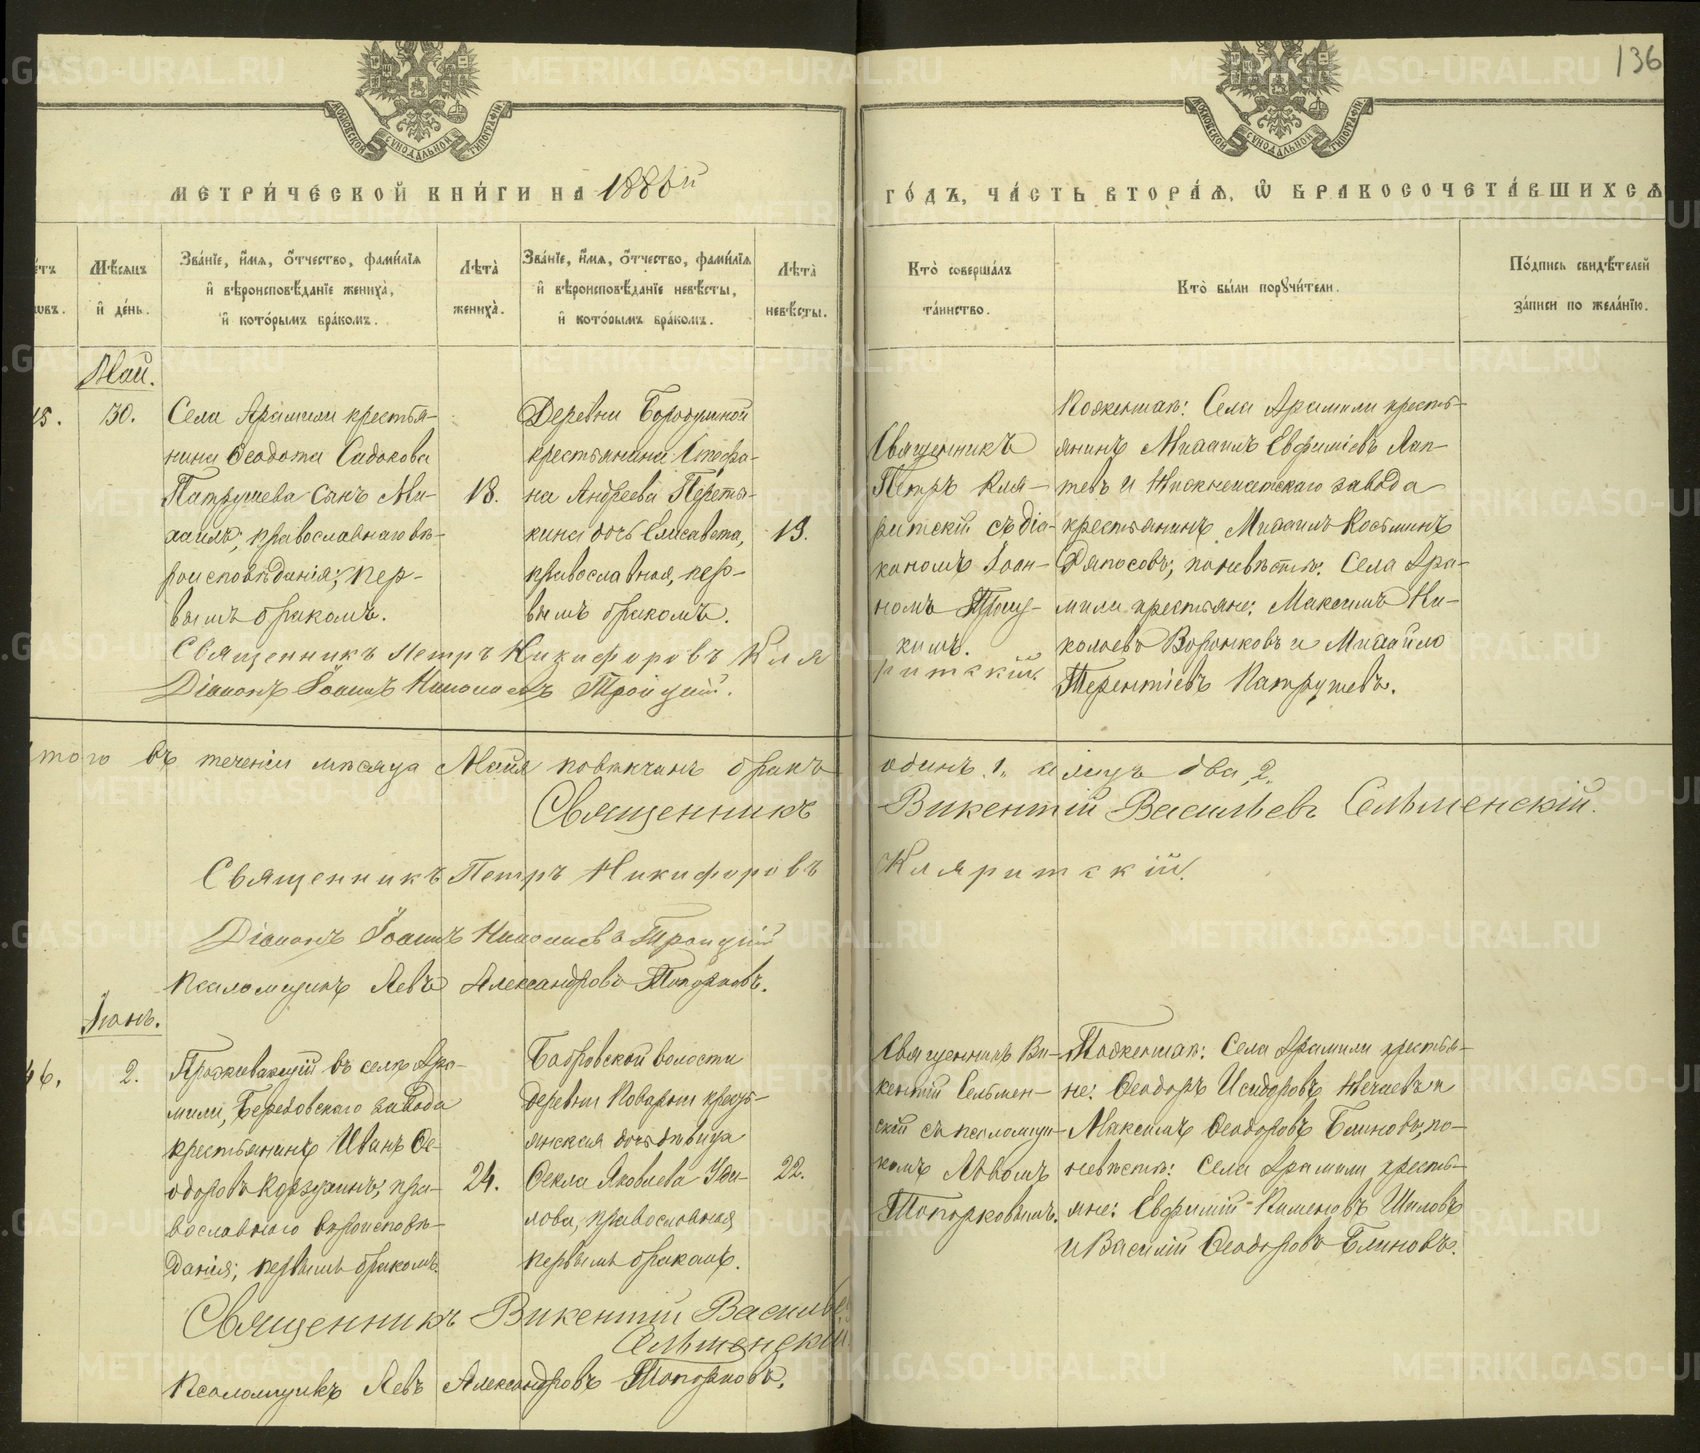 136
МОСКОВСКОЙ СѴНОДАЛЬНОЙ ТИПОГРАФІИ
МОСКОВСКОЙ СѴНОДАЛЬНОЙ ТИПОГРАФІИ
МЕТРИ́ЧЕСКОЙ КНИ́ГИ НА 1886й
ГО́ДЪ, ЧА́СТЬ ВТОРА́Ѧ, Ѽ БРАКОСОЧЕТА́ВШИХСѦ
Мѣ́сяцъ
и҆ де́нь.
Зва́нїе, и҆́мѧ, ѻ҆́тчество, фамѝлїѧ
и҆ вѣроисповѣ́данїе жениха̀,
и҆ кото́рымъ бра́комъ.
Лѣ́та̀
жениха̀.
Зва́нїе, и҆́мѧ, ѻ҆́тчество, фамѝлїѧ
и҆ вѣроисповѣ́данїе невѣ́сты,
и҆ кото́рымъ бра́комъ.
Лѣ́та̀
невѣ́сты.
Кто̀ соверша́лъ
та́инство.
Кто̀ бы́ли порꙋчи́тели.
По́дпись свидѣ́телей
за́писи по жела́нїю.
Май.
15.
30.
Села Арамили крестья-
нина Ѳеодота Садокова
Патрушева сынъ Ми-
хаилъ, православнаго вѣ-
роисповѣданія; пер-
вымъ бракомъ.
18.
Деревни Бородулиной
крестьянина Стефа-
на Андреева Перетя-
кина дочь Елисавета,
православная, пер-
вымъ бракомъ.
19.
Священникъ
Петръ Кля-
ритскій съ діа-
кономъ Іоан-
номъ Троиц-
кимъ.
По женихѣ: Села Арамили кресть-
янинъ Михаилъ Евфиміевъ Лап-
тевъ и Нижнеисетскаго завода
крестьянинъ Михаилъ Косьминъ
Дяпосовъ; по невѣстѣ: Села Ара-
мили крестьяне: Максимъ Ни-
колаевъ Воронковъ и Михаилъ
Терентіевъ Патрушевъ.
Священникъ Петръ Никифоровъ Кля
ритскій.
Діаконъ Іоаннъ Николаевъ Троицкій.
Итого въ теченіи мѣсяца Мая повѣнчанъ бракъ одинъ .1. и лицъ два 2.
Священникъ Викентій Васильевъ Сельменскій.
Священникъ Петръ Никифоровъ Кляритскій.
Діаконъ Іоаннъ Николаевъ Троицкій
Псаломщикъ Левъ Александровъ Топорковъ.
Іюнь.
16.
2.
Проживающій въ селѣ Ара-
мили, Березовскаго завода
крестьянинъ Иванъ Ѳе-
одоровъ Корзухинъ; пра-
вославнаго вѣроисповѣ-
данія; первымъ бракомъ.
24.
Бобровской волости
деревни Поварни кресть-
янская дочь дѣвица
Ѳекла Яковлева Уфи-
лова, православная,
первымъ бракомъ.
22.
Священникъ Ви-
кентій Сельмен-
скій съ псаломщи-
комъ Львомъ
Топорковымъ.
По женихѣ: Села Арамили крестья-
не: Ѳеодоръ Исидоровъ Нечаевъ и
Максимъ Ѳеодоровъ Блиновъ; по
невѣстѣ: Села Арамили кресть-
яне: Евфимій Пименовъ Шиловъ
и Василій Ѳеодоровъ Блиновъ.
Священникъ Викентій Василье
Сельменскій
Псаломщикъ Левъ Александровъ Топорковъ.